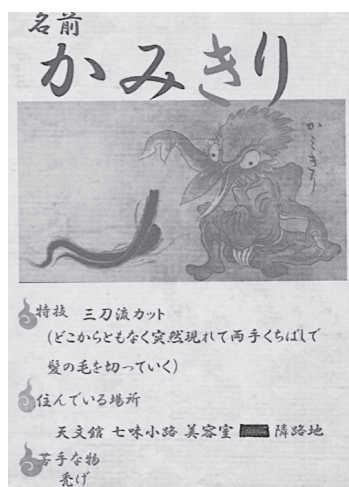 名前
かみきり
かみきり
特技 三刀流カット
(どこからともなく突然現れて両手くちばしで
髪の毛を切っていく)
住んでいる場所
天文館 七味小路 美容室 隣路地
苦手な物
禿げ